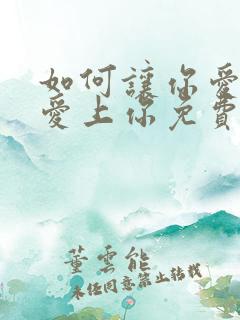 如何讓你愛
愛上你免費
董雲能
未經同意禁止转載